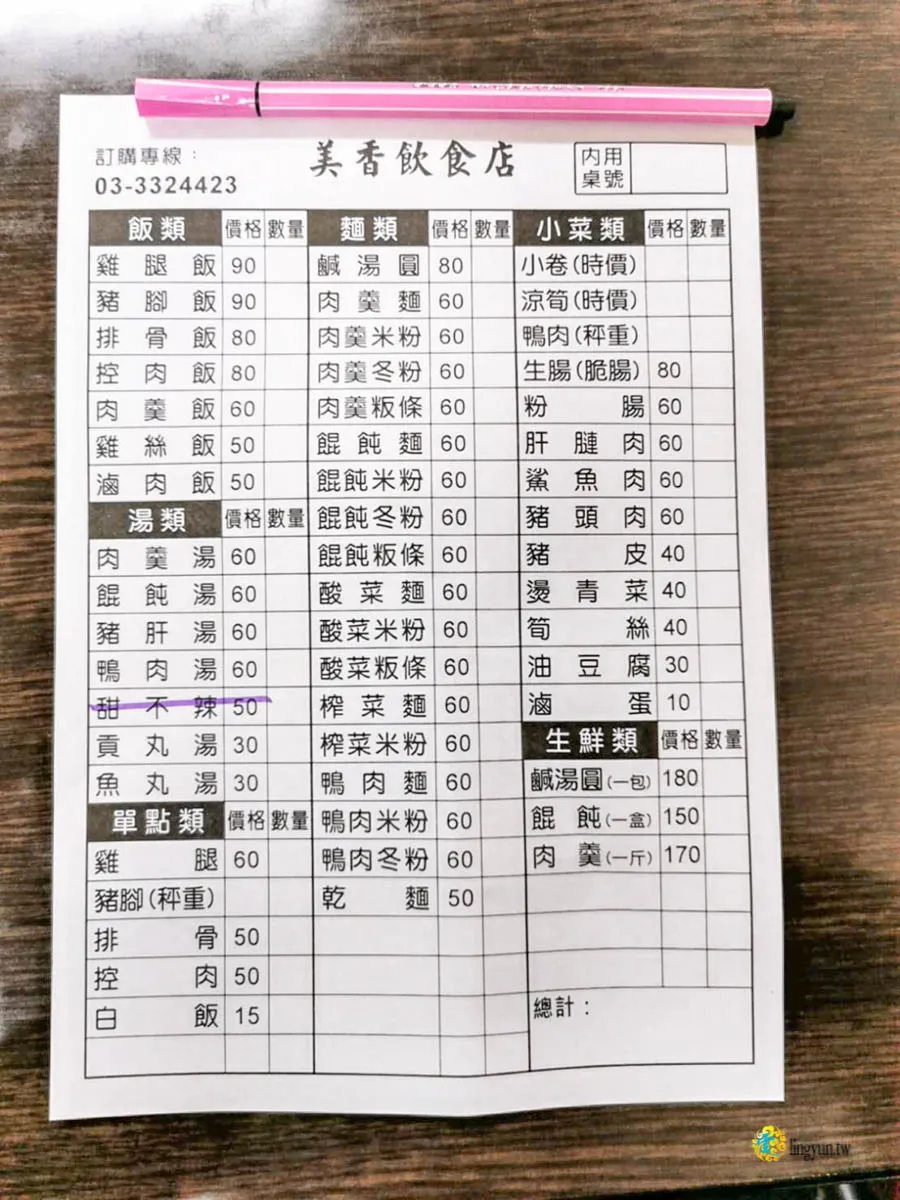 訂購專線：
03-3324423
美香飲食店
內用
桌號
飯類 價格 數量
雞腿飯 90
豬腳飯 90
排骨飯 80
控肉飯 80
肉羹飯 60
雞絲飯 50
滷肉飯 50
湯類 價格 數量
肉羹湯 60
餛飩湯 60
豬肝湯 60
鴨肉湯 60
甜不辣 50
貢丸湯 30
魚丸湯 30
單點類 價格 數量
雞腿 60
豬腳(秤重)
排骨 50
控肉 50
白飯 15
麵類 價格 數量
鹹湯圓 80
肉羹麵 60
肉羹米粉 60
肉羹冬粉 60
肉羹粄條 60
餛飩麵 60
餛飩米粉 60
餛飩冬粉 60
餛飩粄條 60
酸菜麵 60
酸菜米粉 60
酸菜粄條 60
榨菜麵 60
榨菜米粉 60
鴨肉麵 60
鴨肉米粉 60
鴨肉冬粉 60
乾麵 50
小菜類 價格 數量
小卷(時價)
涼筍(時價)
鴨肉(秤重)
生腸(脆腸) 80
粉腸 60
肝膁肉 60
鯊魚肉 60
豬頭肉 60
豬皮 40
燙青菜 40
筍絲 40
油豆腐 30
滷蛋 10
生鮮類 價格 數量
鹹湯圓(一包) 180
餛飩(一盒) 150
肉羹(一斤) 170
總計：
lingyun.tw